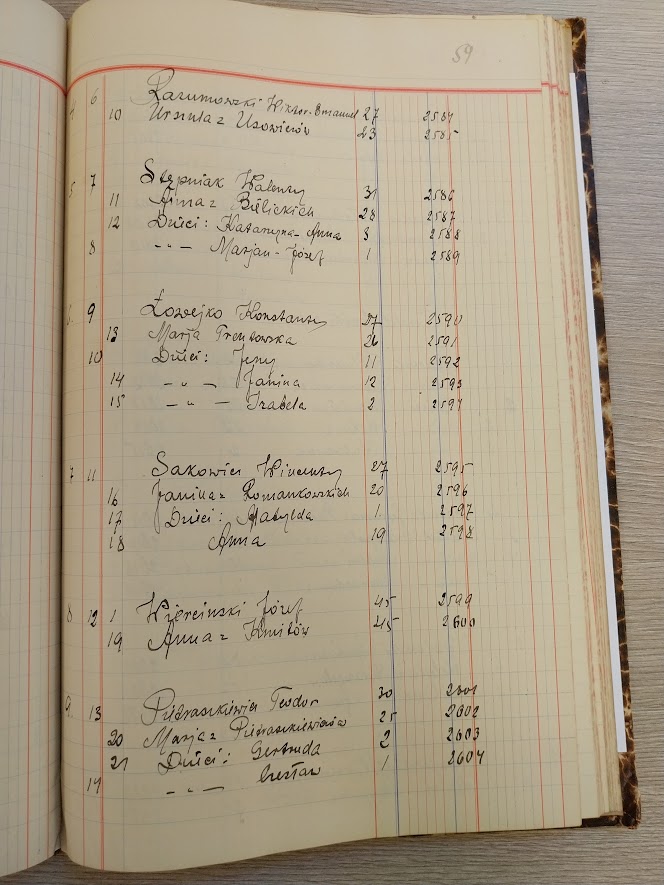 59
4 6 Razumowski Wiktor-Emanuel 27 2584
10 Urszula z Usowiczów 23 2585
5 7 Stępniak Walenty 31 2586
11 Anna z Bielickich 28 2587
12 Dzieci: Katarzyna-Anna 3 2588
8 -"- Marjan-Józef 1 2589
6 9 Łowejko Konstanty 27 2590
13 Marja 26 2591
10 Dzieci: Jerzy 11 2592
14 -"- Janina 12 2593
15 -"- Izabela 2 2594
7 11 Sakowicz Wincenty 27 2595
16 Janina z Romankowskich 20 2596
17 Dzieci: Matylda 1 2597
18 Anna 19 2598
8 12 1 Wierciński Józef 45 2599
19 Anna z Kmitów 45 2600
9. 13 Pietraszkiewicz Teodor 30 2601
20 Marja z Pietraszkiewiczów 25 2602
21 Dzieci: Gertruda 2 2603
14 -"- Czesław 1 2604